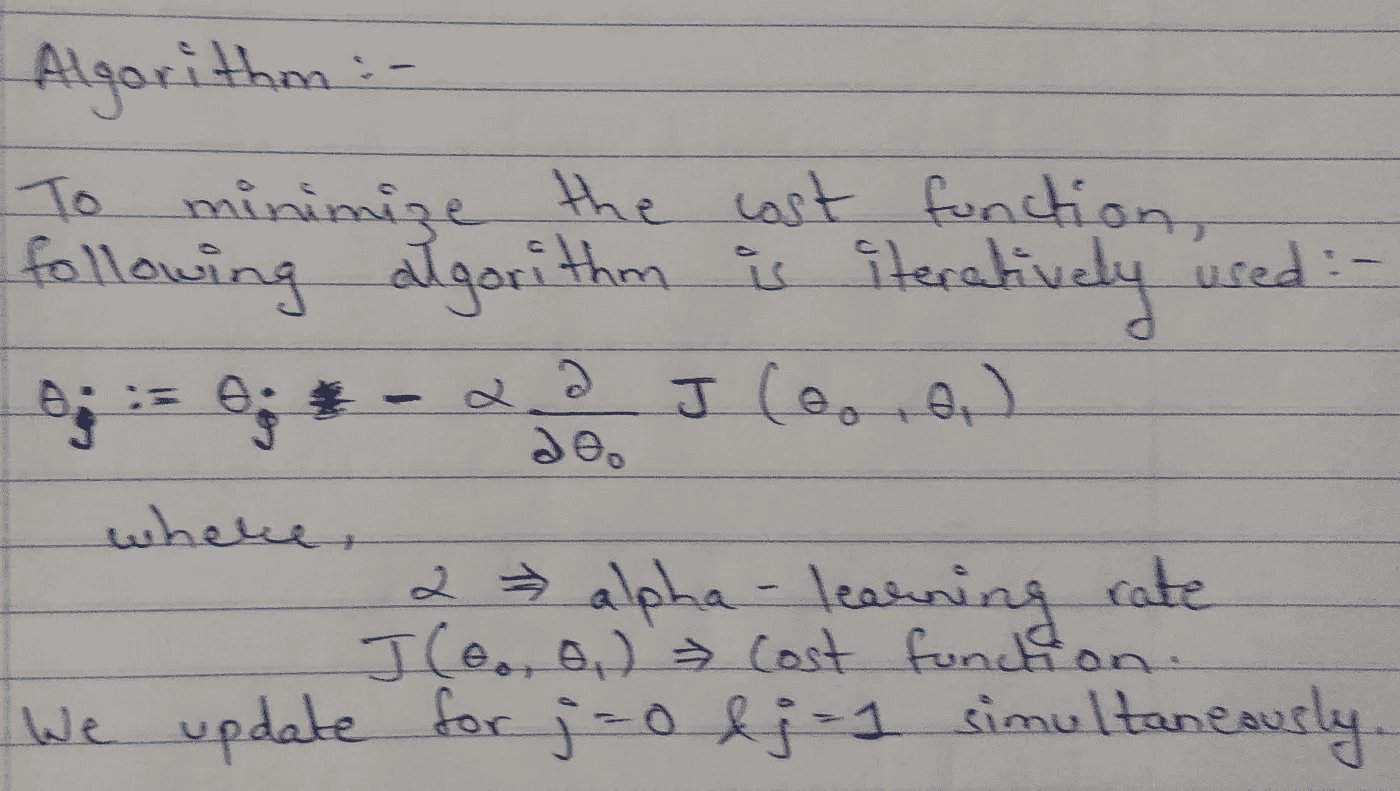 Algorithm :-
To minimize the cost function,
following algorithm is iteratively used :-
θj := θj - α ∂/∂θ₀ J (θ₀, θ₁)
where,
α ⇒ alpha - learning rate
J(θ₀, θ₁) ⇒ Cost function.
We update for j=0 & j=1 simultaneously.